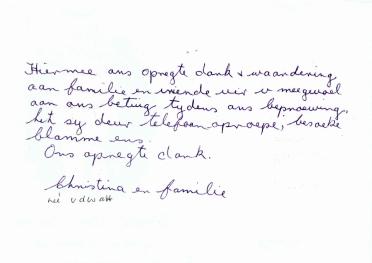 Hiermee ons opregte dank & waardering
aan familie en vriende vir u meegevoel
aan ons betuig tydens ons beproewing,
het sy deur telefoon oproepe, besoeke
blomme ens.
Ons opregte dank.
Christina en familie
né vdWatt